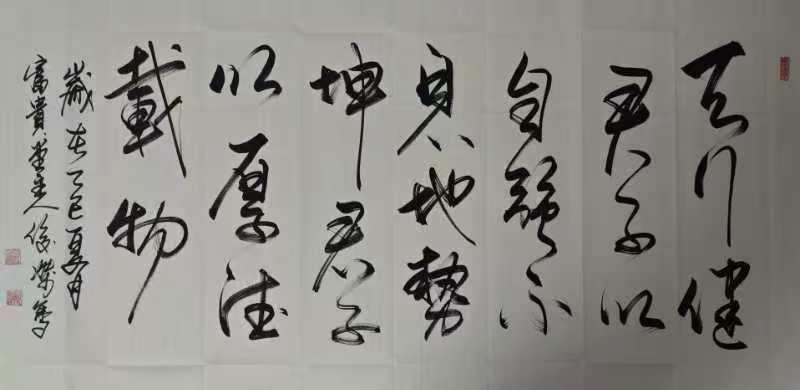 天行健
君子以
自强不
息地势
坤君子
以厚德
載物
嵗在乙巳夏月
富貴堂主人俊榮書